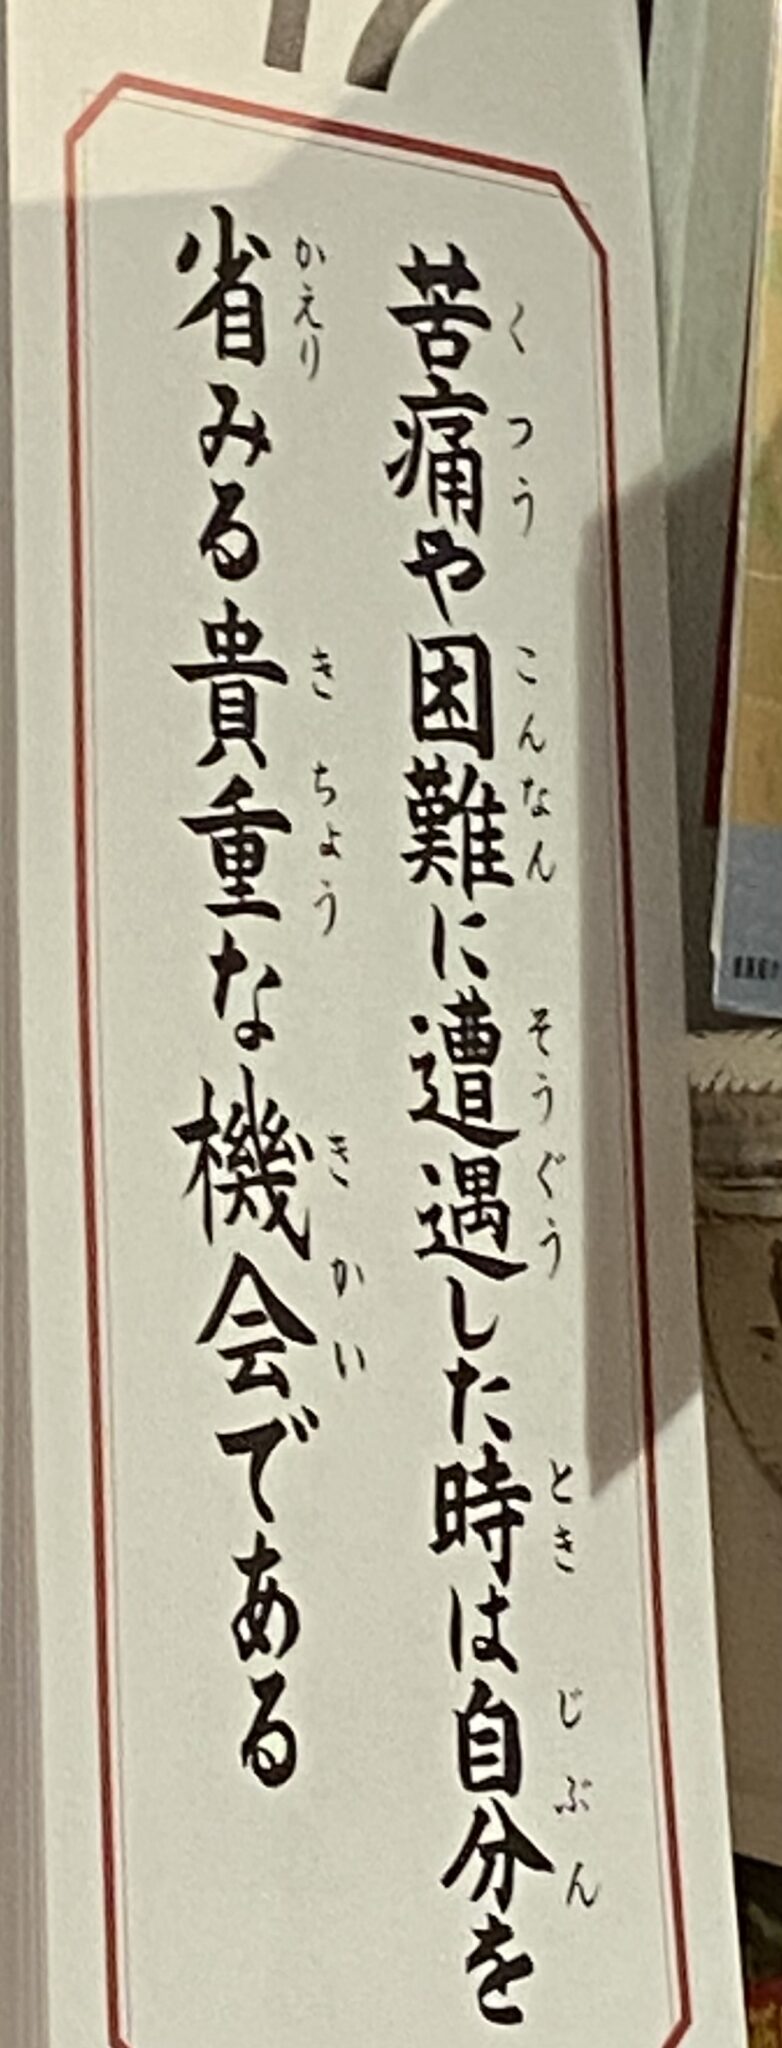 苦痛や困難に遭遇した時は自分を
くつう こんなん そうぐう とき じぶん
省みる貴重な機会である
かえり きちょう きかい